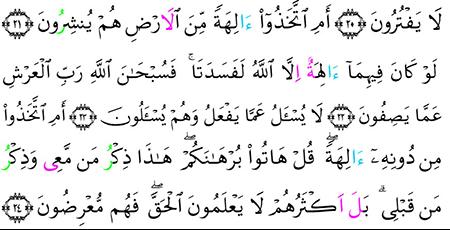 لَا يَفْتُرُونَ ٢٠ أَمِ ٱتَّخَذُوٓاْ ءَالِهَةٗ مِّنَ ٱلَارْضِ هُمْ يُنشِرُونَ ٢١
لَوْ كَانَ فِيهِمَآ ءَالِهَةٌ اِلَّا ٱللَّهُ لَفَسَدَتَاۚ فَسُبْحَٰنَ ٱللَّهِ رَبِّ ٱلْعَرْشِ
عَمَّا يَصِفُونَ ٢٢ لَا يُسْـَٔلُ عَمَّا يَفْعَلُ وَهُمْ يُسْـَٔلُونَ ٢٣ أَمِ ٱتَّخَذُواْ
مِن دُونِهِۦٓ ءَالِهَةٗۖ قُلْ هَاتُواْ بُرْهَٰنَكُمْۖ هَٰذَا ذِكْرُ مَن مَّعِى وَذِكْرُ
مَن قَبْلِىۚ بَلَ اَكْثَرُهُمْ لَا يَعْلَمُونَ ٱلْحَقَّۖ فَهُم مُّعْرِضُونَ ٢٤